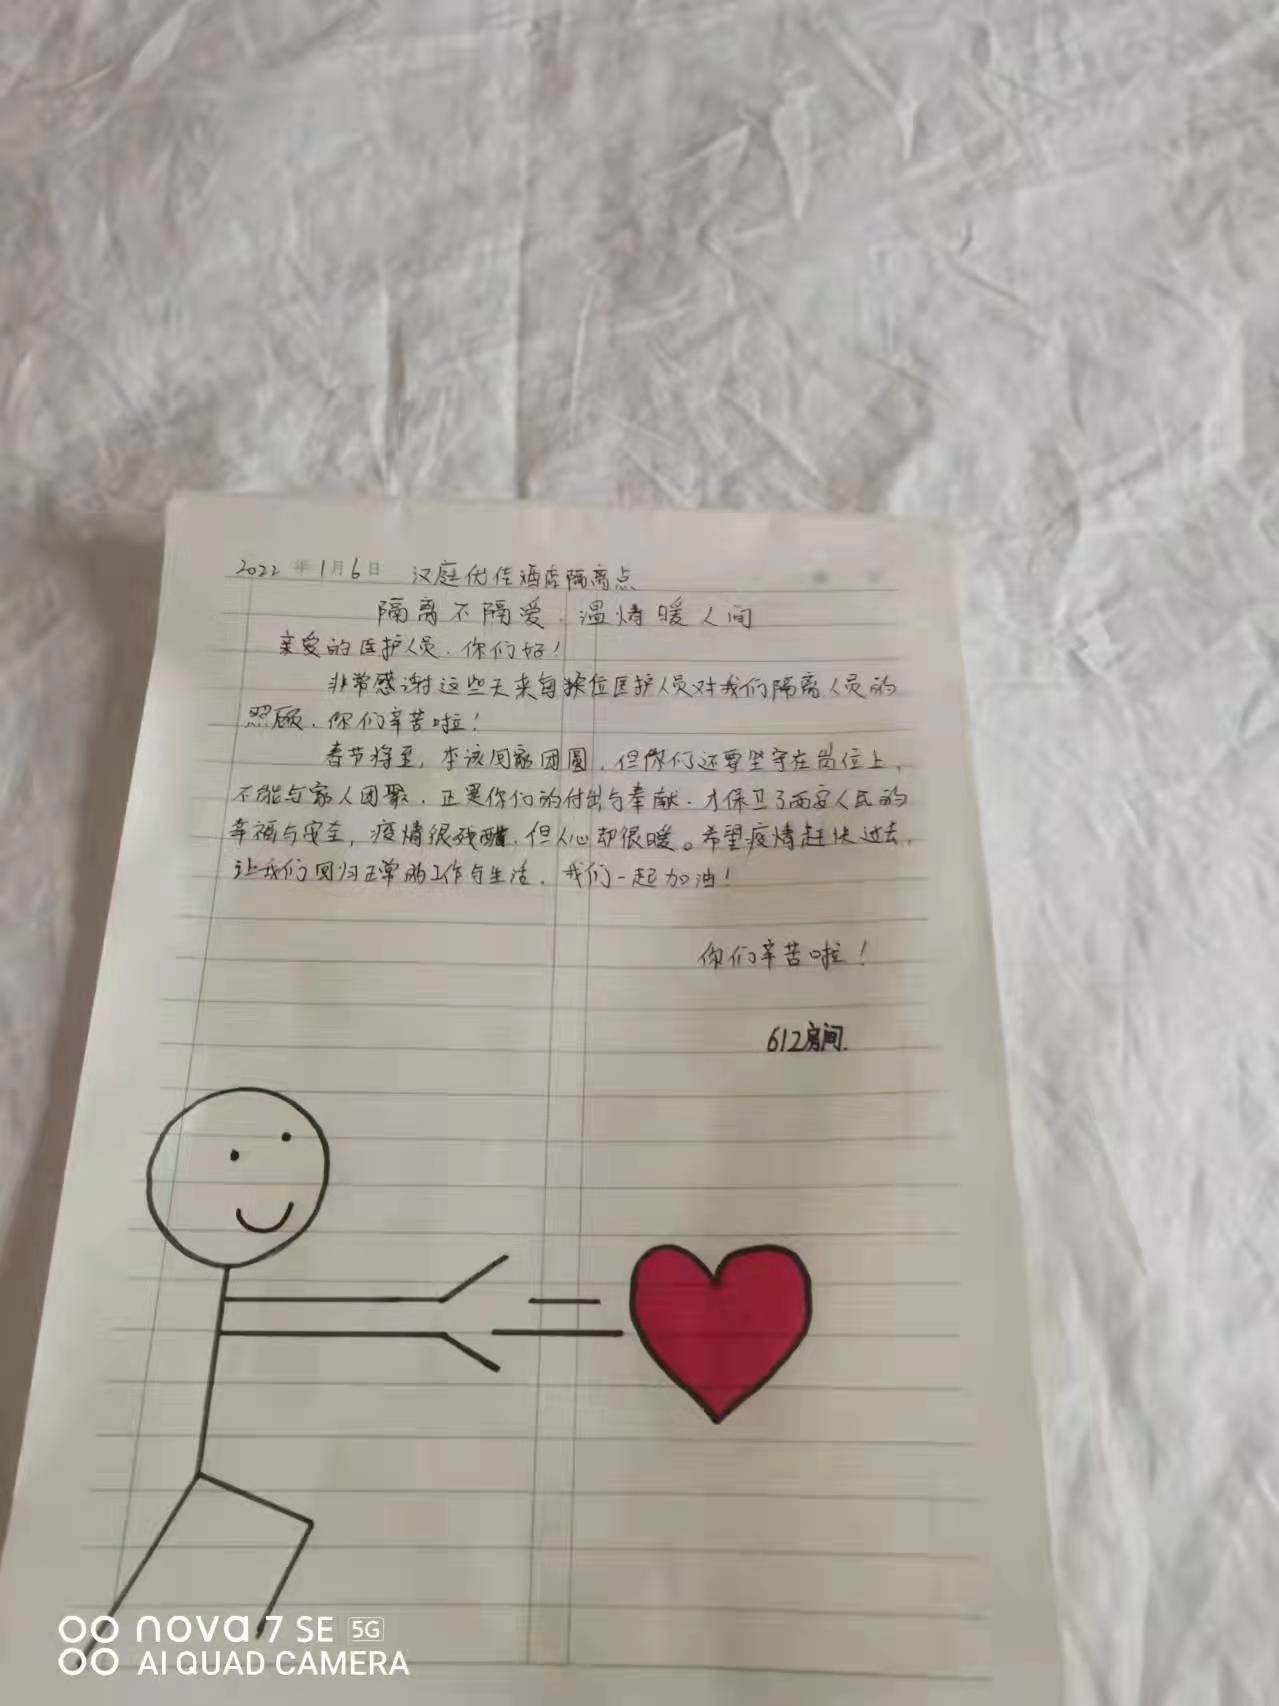 2022年1月6日 汉庭优佳酒店隔离点
隔离不隔爱.温情暖人间
亲爱的医护人员.你们好!
非常感谢这些天来每一位医护人员对我们隔离人员的
照顾.你们辛苦啦!
春节将至,本该回家团圆,但你们还要坚守在岗位上,
不能与家人团聚.正是你们的付出与奉献.才保卫了西安人民的
幸福与安全,疫情很残酷.但人心却很暖。希望疫情赶快过去,
让我们回归正常的工作与生活.我们一起加油!
你们辛苦啦!
612房间.
nova 7 SE 5G
AI QUAD CAMERA